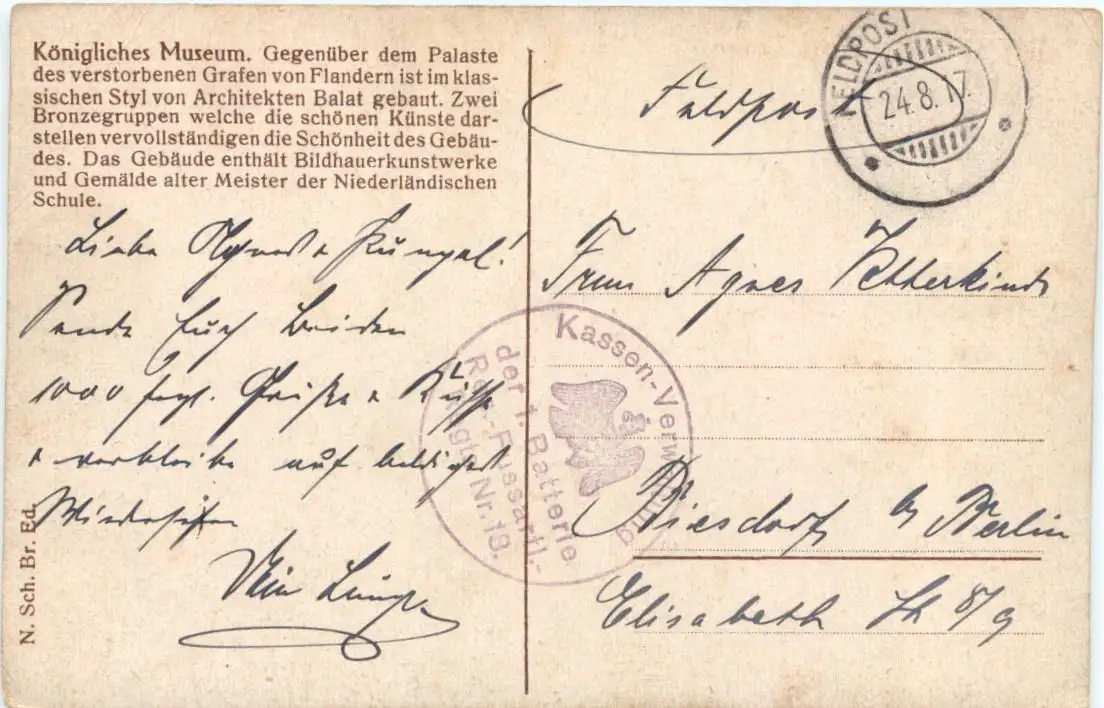 Königliches Museum. Gegenüber dem Palaste
des verstorbenen Grafen von Flandern ist im klas-
sischen Styl von Architekten Balat gebaut. Zwei
Bronzegruppen welche die schönen Künste dar-
stellen vervollständigen die Schönheit des Gebäu-
des. Das Gebäude enthält Bildhauerkunstwerke
und Gemälde alter Meister der Niederländischen
Schule.
Liebe Agnes
Sende Euch beiden
1000 Grüße u Küsse
u verbleibe auf baldiges
Wiedersehen
Dein
N. Sch. Br. Ed.
Feldpost
FELDPOST
24.8.17.
Frau Agnes
Biesdorf b/ Berlin
Elisabeth 8/9
Kassen-Verwaltung
der 1. Batterie
Res.-Fussartl.-
Regt. Nr.